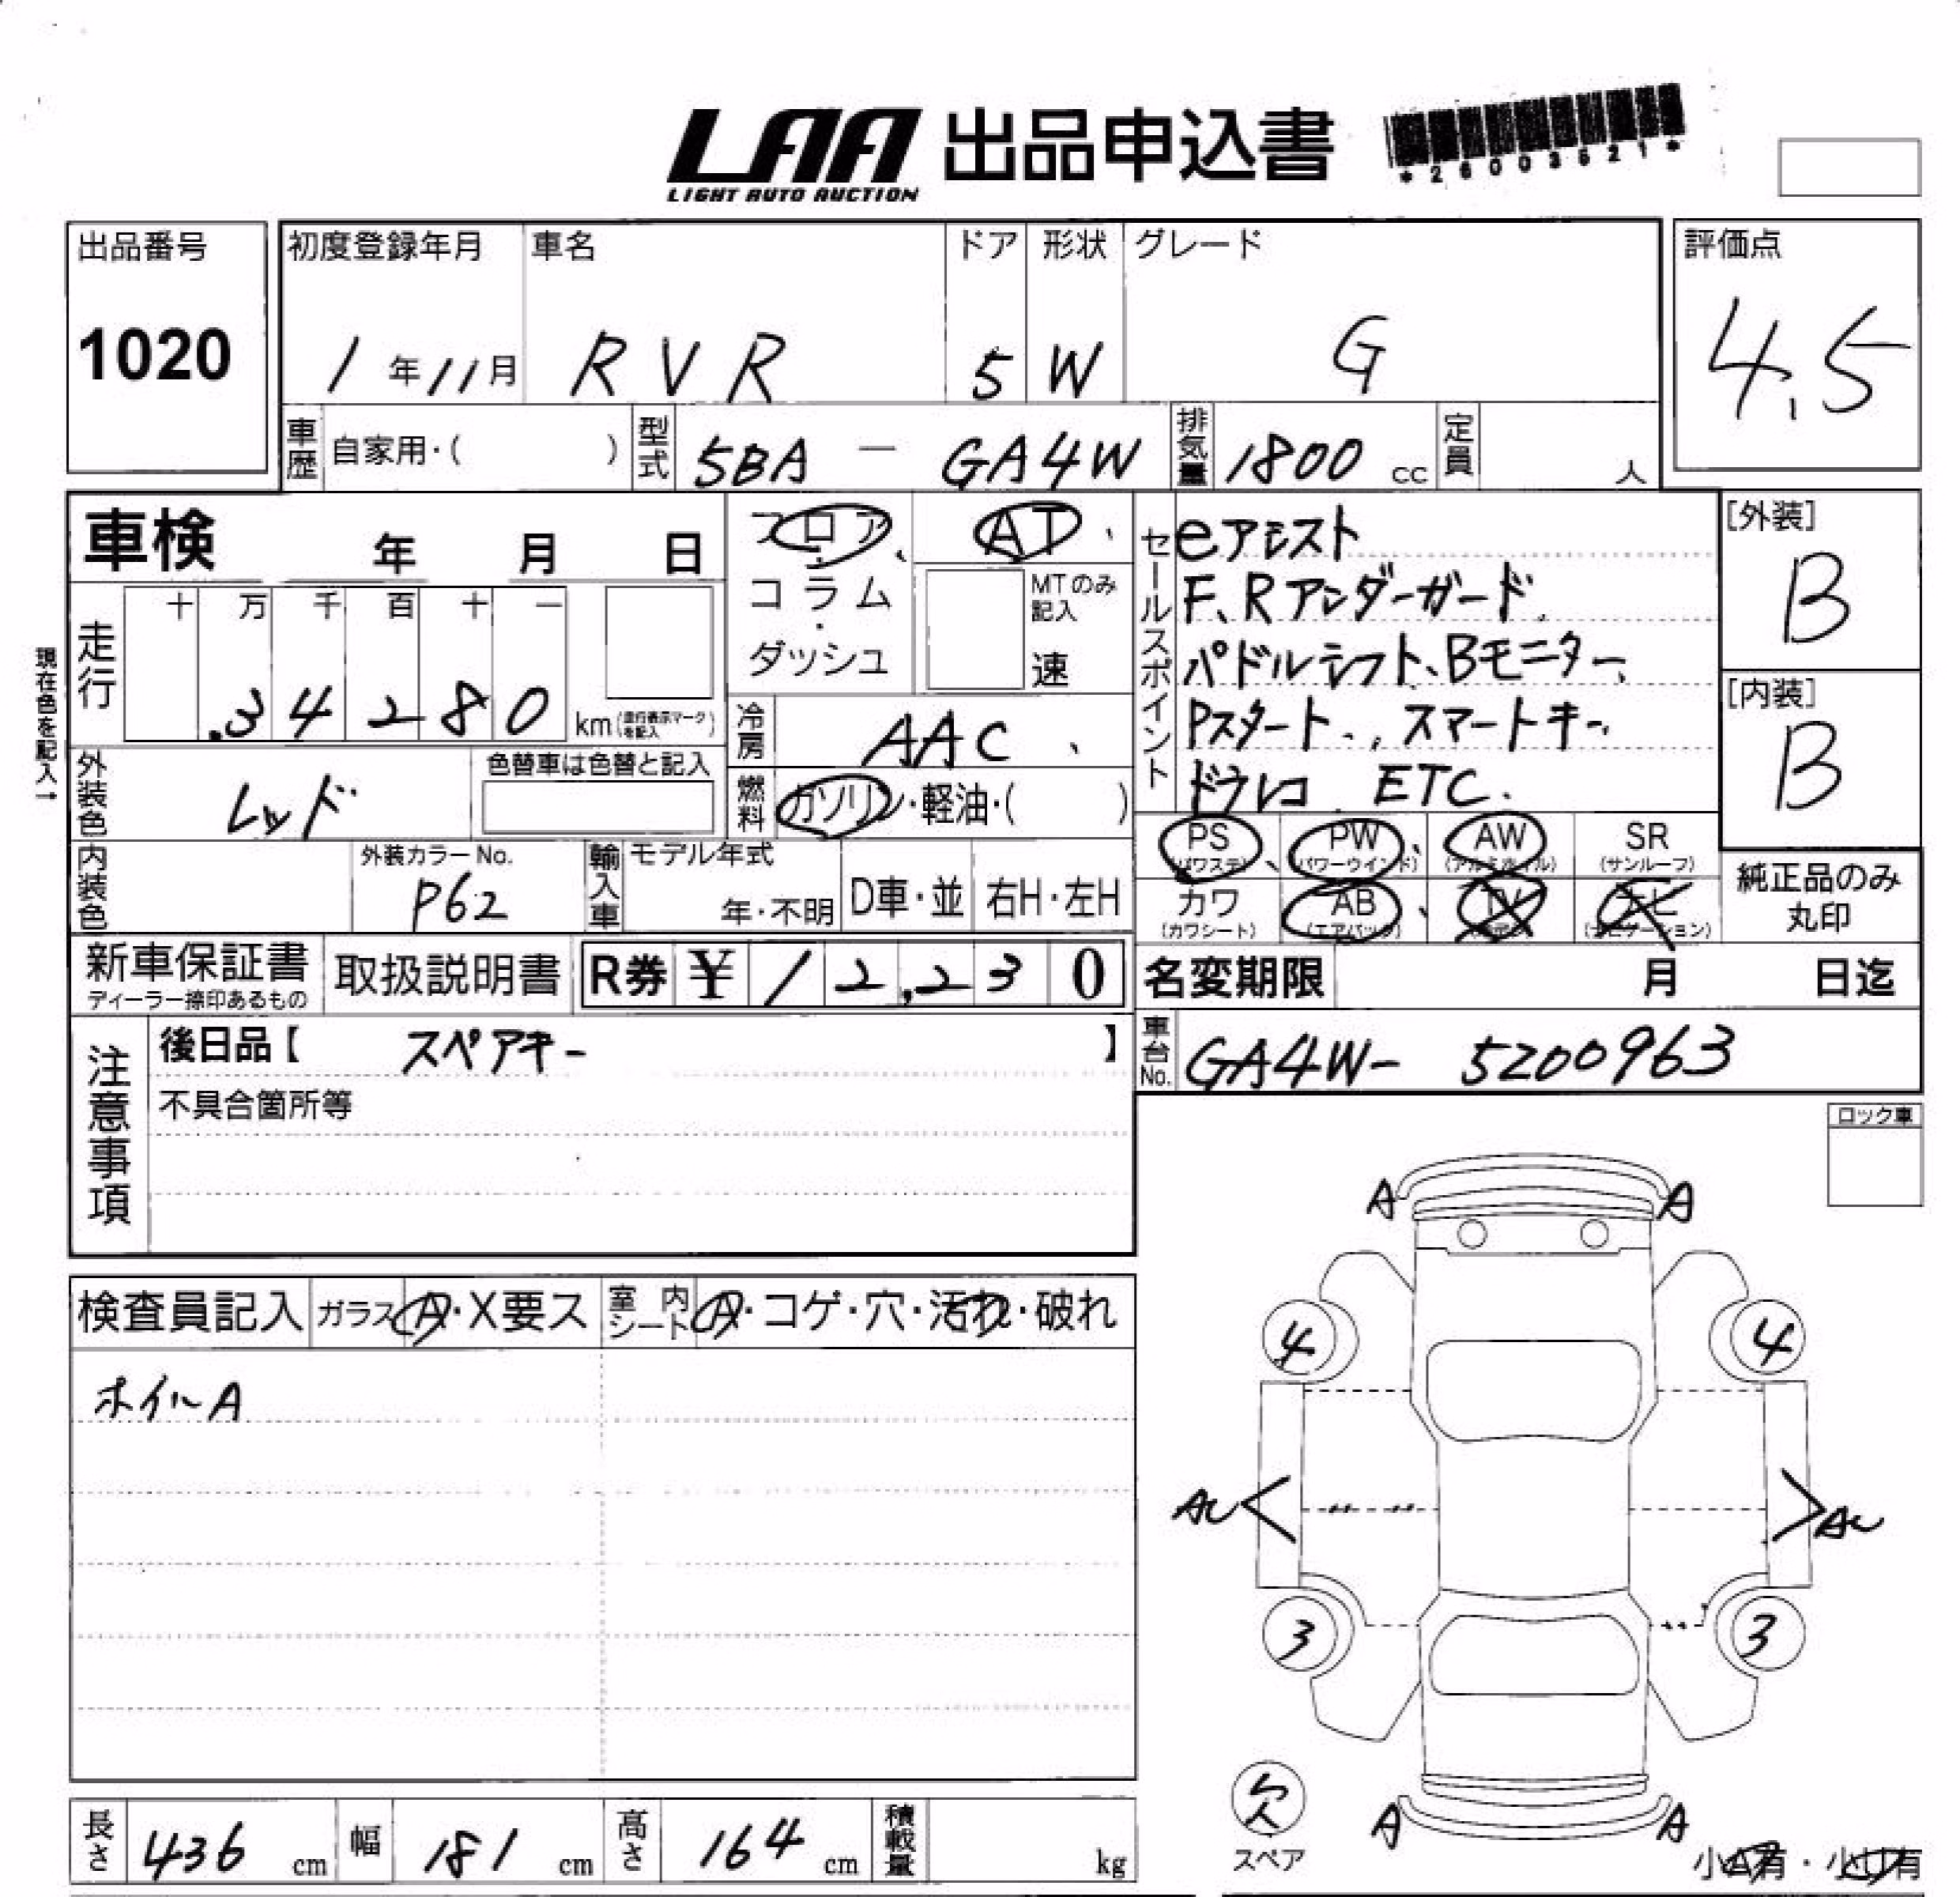 LAA 出品申込書
LIGHT AUTO AUCTION
*26003521*
出品番号
1020
初度登録年月 車名 ドア 形状 グレード
1年11月 RVR 5 W G
評価点
4.5
車歴 自家用・( ) 型式 5BA - GA4W 排気量 1800 cc 定員 人
車検 年 月 日
フロア・コラム・ダッシュ
AT
MTのみ記入
速
セールスポイント
eアシスト
F、Rアンダーガード
パドルシフト、Bモニター、
Pスタート、スマートキー、
ドラレコ ETC.
[外装]
B
[内装]
B
現在色を記入→
走行 十 万 千 百 十 一
34280 km (走行表示マークを記入)
冷房 AAC
外装色 レッド
色替車は色替と記入
燃料 ガソリン・軽油・( )
内装色
外装カラーNo.
P62
輸入車 モデル年式
年・不明 D車・並 右H・左H
PS (パワステ) PW (パワーウインド) AW (アルミホイル) SR (サンルーフ)
カワ (カワシート) AB (エアバック) TV (テレビ) ナビ (ナビゲーション)
純正品のみ
丸印
新車保証書
ディーラー捺印あるもの
取扱説明書
R券 ¥12,230
名変期限 月 日迄
注意事項
後日品【 スペアキー 】
不具合箇所等
車台No. GA4W- 5200963
ロック車
検査員記入 ガラス A・X要ス 室内シート A・コゲ・穴・汚れ・破れ
ホイルA
A A
4 4
AU AU
3 3
欠
スペア
A A
小A有・小U有
長さ 436 cm 幅 181 cm 高さ 164 cm 積載量 kg